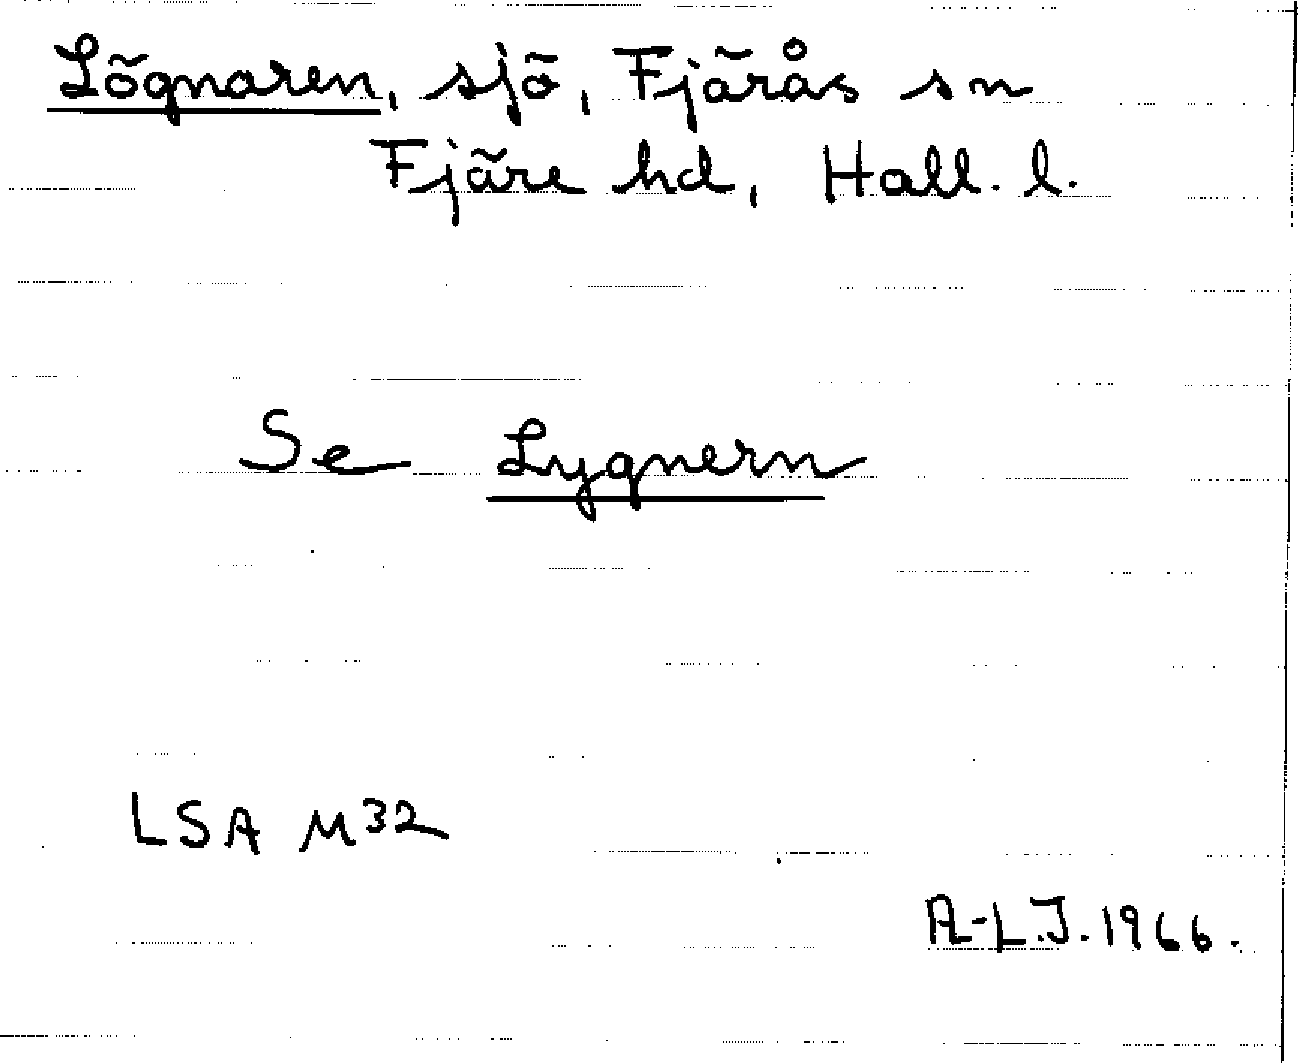 Lögnaren, sjö, Fjärås sn
Fjäre hd, Hall. l.
Se Lygnern
LSA M32
A-L.J. 1966.